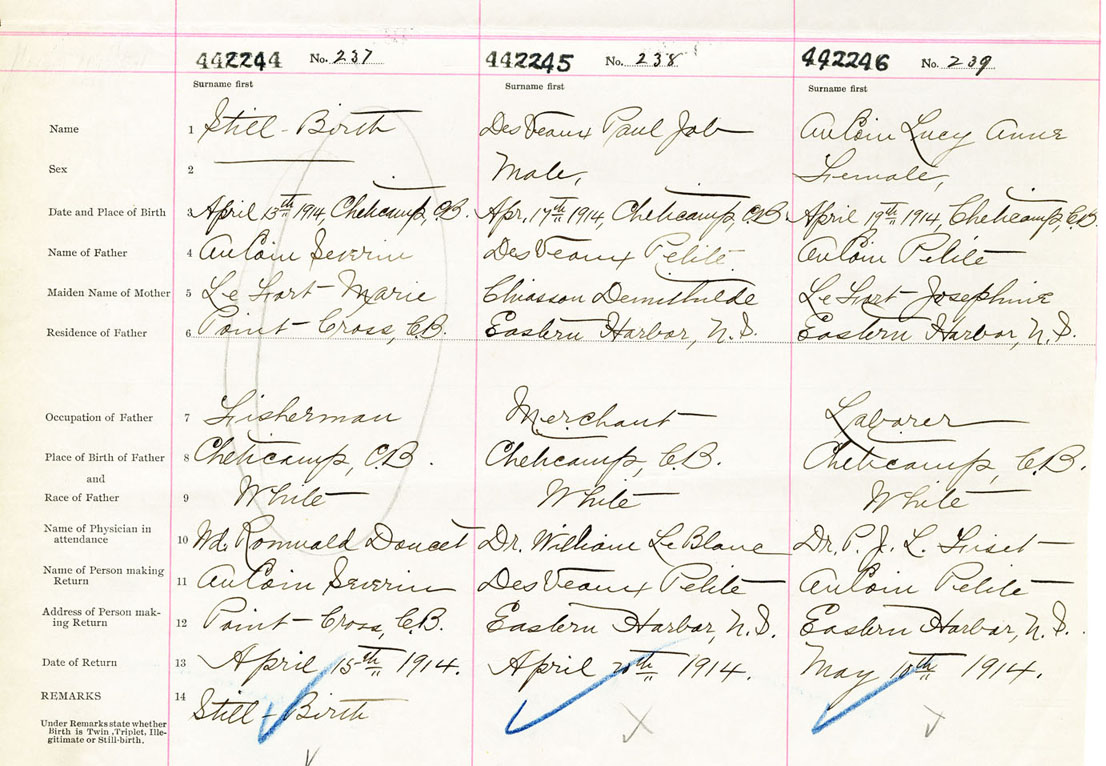 442244 No. 237 442245 No. 238 442246 No. 239
Surname first Surname first Surname first
Name 1 Still-Birth DesVeaux Paul Job AuCoin Lucy Anne
Sex 2 Male, Female,
Date and Place of Birth 3 April 13th 1914, Cheticamp, C.B. Apr. 17th 1914, Cheticamp, C.B. April 19th 1914, Cheticamp, C.B.
Name of Father 4 AuCoin Severin DesVeaux Petite AuCoin Petite
Maiden Name of Mother 5 LeFort Marie Chiasson Demithilde LeFort Josephine
Residence of Father 6 Point-Cross, C.B. Eastern Harbor, N.S. Eastern Harbor, N.S.
Occupation of Father 7 Fisherman Merchant Laborer
Place of Birth of Father 8 Cheticamp, C.B. Cheticamp, C.B. Cheticamp, C.B.
and
Race of Father 9 White White White
Name of Physician in
attendance 10 Wd. Romuald Doucet Dr. William LeBlanc Dr. P. J. L. Fiset
Name of Person making
Return 11 AuCoin Severin DesVeaux Petite AuCoin Petite
Address of Person mak-
ing Return 12 Point-Cross, C.B. Eastern Harbor, N.S. Eastern Harbor, N.S.
Date of Return 13 April 15th 1914. April 1914. May 10th 1914.
REMARKS 14 Still-Birth
Under Remarks state whether
Birth is Twin, Triplet, Ille-
gitimate or Still-birth.